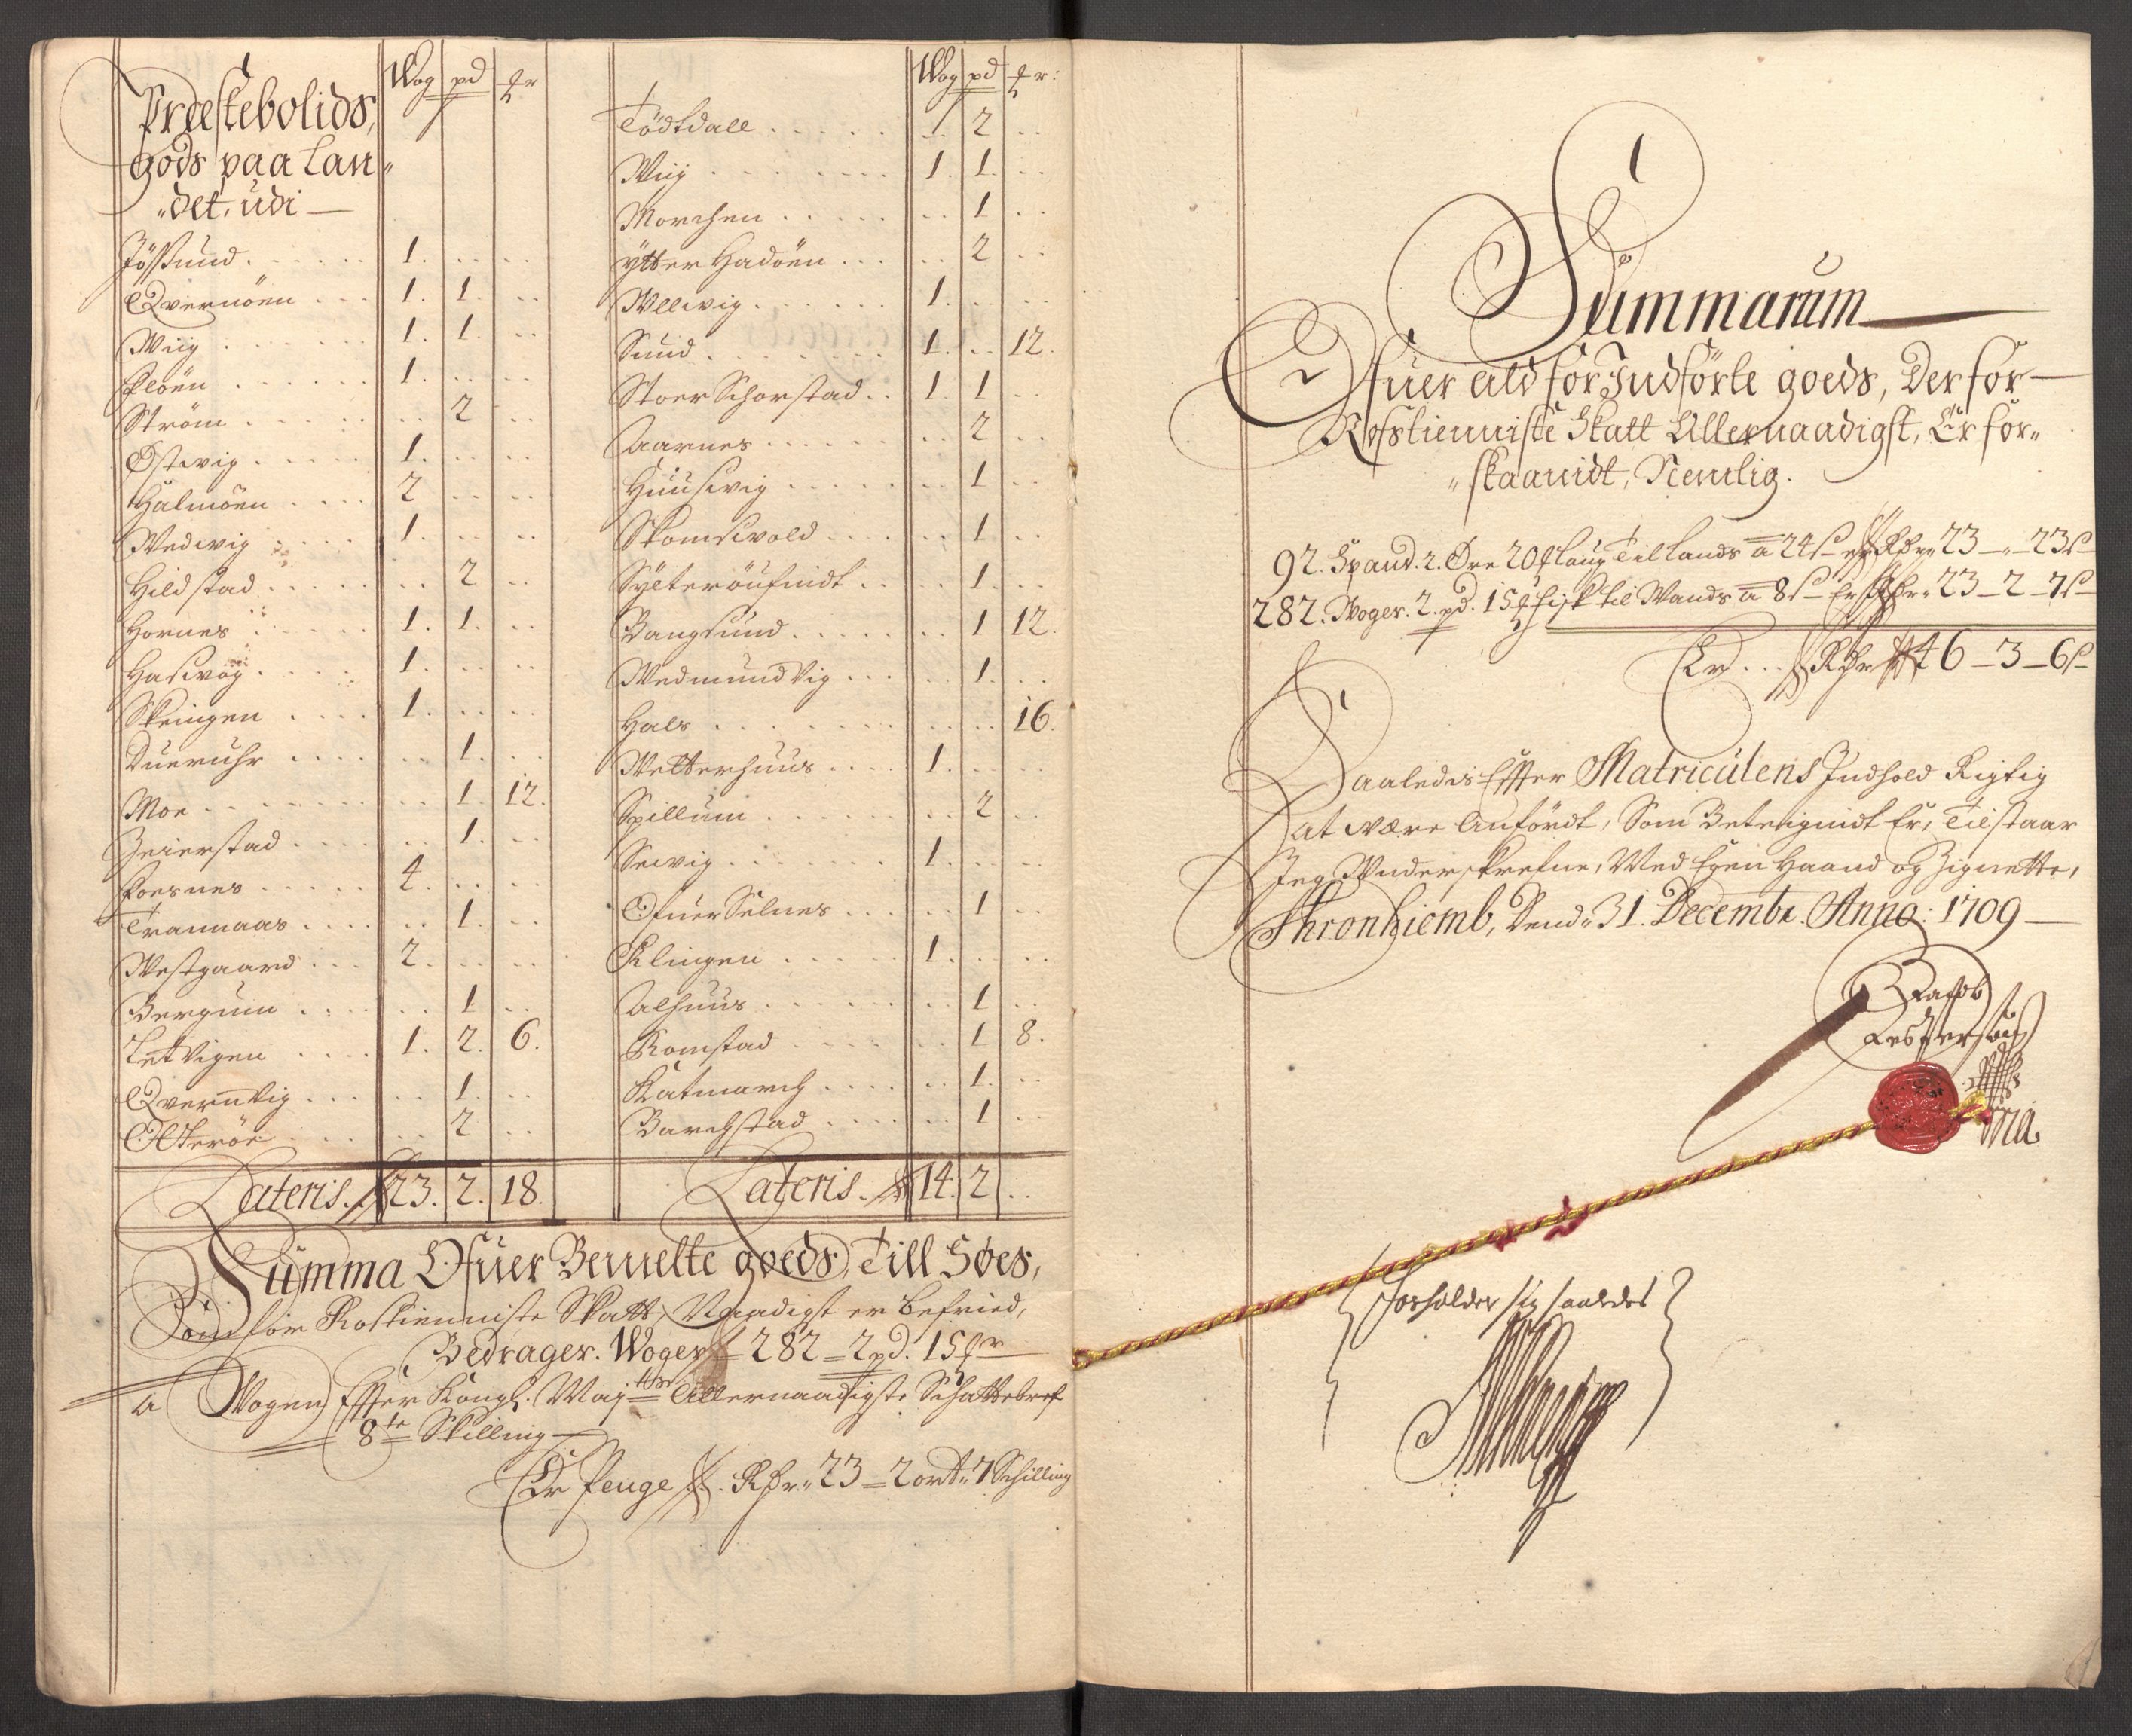 Præstebolids,
gods paa Lan„
„det, udi —
Wog pd
Jössund . . 1. . . . .
Qvernöen . . 1. 1. . .
Wiig . . 1. 1. . .
Floen . . 1. . . . .
Ström . . . . 2 . .
Östvig . . 1. . . . .
Halmöen . . 2 . . . .
Wedvig . . 1. . . . .
Hildstad . . . . 2 . .
Hornes . . 1. 1. . .
Hasvog . . 1. . . . .
Skingen . . 1. . . . .
Dueruhr . . . . 1. . .
Moe . . . . 1. 12.
Zeierstad . . . . 1. . .
Foesnes . . 4. . . . .
Trannaas . . . . 1. . .
Westgaard . . 2. . . . .
Bergum . . . . 1 . .
Letvigen . . 1. 2. 6.
Qvernvig . . . . 1. . .
Otterøe . . . . 2 . .
Lateris. 23. 2. 18.
Wog pd
Tödtdall . . . . 2 . .
Wiig . . 1. 1. . .
Morchen . . . . 1 . .
ytter Hadöen . . . . 2 . .
Ullvig . . 1. . . . .
Sund . . 1. . . 12.
Stoer Schorstad . . 1 1 . .
Aarnes . . . . 2 . .
Huusvig . . . . 1 . .
Skomsvold . . . . 1 . .
Sylteröusnidt . . . . 1. . .
Bangsund . . . . 1 12.
Wedmundvig . . . . 1. . .
Hals . . . . . . 16.
Vetterhuus . . 1. . . . .
Spillum . . . . 2 . .
Sevig . . 1. . . . .
Ofuer Selnes . . . . 1 . .
Klingen . . 1. . . . .
Alhuus . . . . 1 . .
Romstad . . . . 1 8.
Katmarch . . . . 1. . .
Barchstad . . . . 1 . .
Lateris. 14. 2 . .
Summa Ofuer Bemelte goeds, Till Søes,
Som for Rostienniste Skatt, Naadigst er befried,
Bedrager. Woger 282 = 2 pd. 15
a Wogen Effter Kongl. Maj:tts Allernaadigste Schattebref
8te Skilling —
Er Penge Rdr. 23 = 2 ort „ 7 Schilling
Summarum
Ofuer ald for Indförte goeds, Der for —
Rosstienniste Skatt Allernaadigst, Er for„
„skaanidt, Nemlig.
92. Spand. 2. Öre 20 Laug Til Lands a 24 s er Rdr 23 — „ — 23 s
282. Woger. 2. pd. 15 fisk til Wands a 8 s Er Rdr. 23 — 2 — 7 s
Er . . . Rdr 46 — 3 — 6 s
Saaledis Effter Matriculens Indhold Rigtig
at være Anfördt, Som Beteignidt Er, Tilstaar
Jeg Underskrefne, Med Egen Haand og Zignette,
Thronhiemb, Dend. 31. Decembr. Anno: 1709 —
Forholder sig saaledes